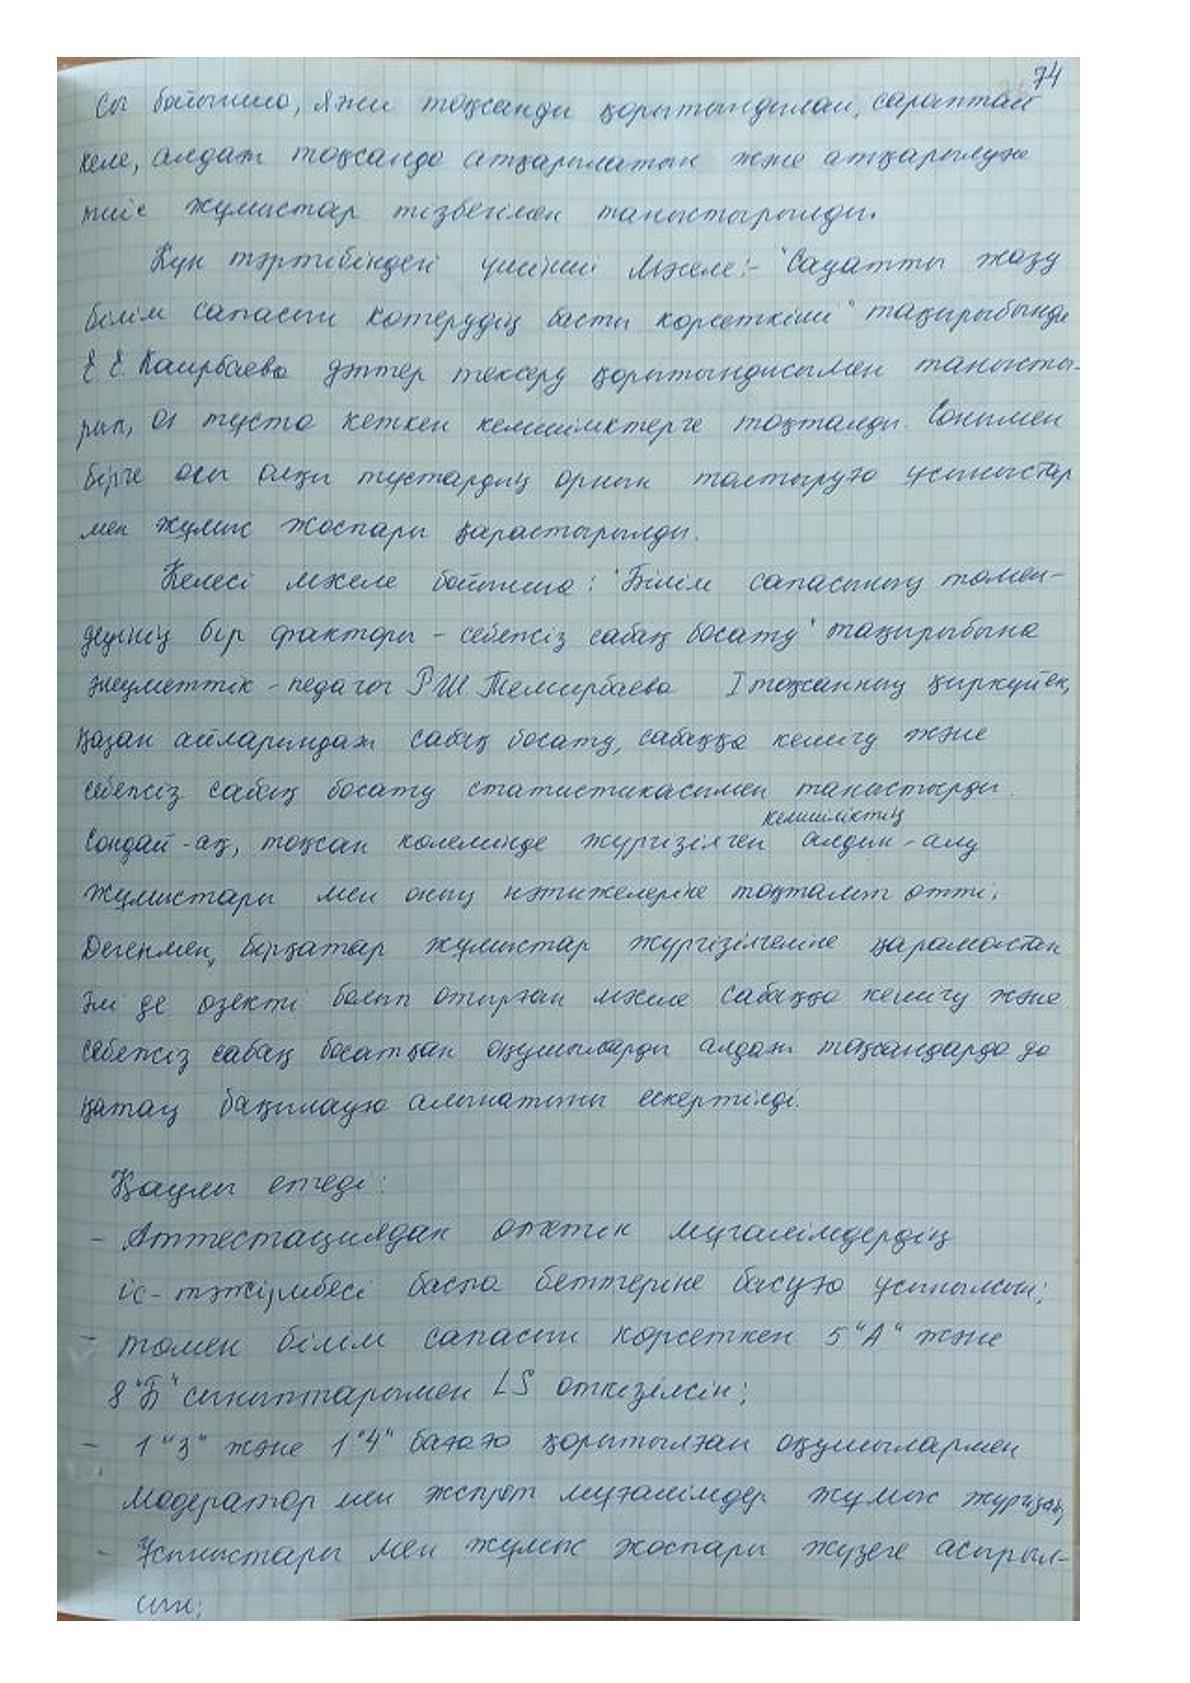 74
сы бойынша, яғни тоқсанды қорытындылай, сараптай
келе, алдағы тоқсанда атқарылатын және атқарылуға
тиіс жұмыстар тізбегімен таныстырылды.
Күн тәртібіндегі үшінші мәселе:- "Сауатты жазу
білім сапасын көтерудің басты көрсеткіші" тақырыбында
Е Е Каирбаева дәптер тексеру қорытындысымен танысты-
рып, ол тұста кеткен кемшіліктерге тоқталды. Сонымен
бірге осы олқы тұстардың орнын толтыруға ұсыныстар
мен жұмыс жоспары қарастырылды.
Келесі мәселе бойынша: "Білім сапасының төмен-
деуінің бір факторы - себепсіз сабақ босату" тақырыбына
әлеуметтік - педагог Р Ш Темирбаева I тоқсанның қыркүйек,
қазан айларындағы сабақ босату, сабаққа кешігу және
себепсіз сабақ босату статистикасымен таныстырды.
кемшіліктің
Сондай-ақ, тоқсан көлемінде жүргізілген алдын-алу
жұмыстары мен оның нәтижелеріне тоқталып өтті.
Дегенмен, бірқатар жұмыстар жүргізілгеніне қарамастан
әлі де өзекті болып отырған мәселе сабаққа кешігу және
себепсіз сабақ босатқан оқушыларды алдағы тоқсандарда да
қатаң бақылауға алынатыны ескертілді.
Қаулы етеді:
- Аттестациядан өткен мұғалімдердің
іс-тәжірибесі баспа беттеріне басуға ұсынылсын;
- төмен білім сапасын көрсеткен 5"А" және
8"Б" сыныптарымен LS өткізілсін;
- 1"3" және 1"4" бағаға қорытылған оқушылармен
Модератор мен эксперт мұғалімдер жұмыс
- Ұсыныстары мен жұмыс жоспары жүзеге асырыл-
сын;